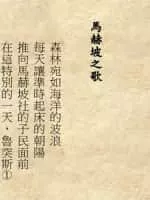 馬赫坡之歌
森林宛如海洋的波浪
每天讓準時起床的朝陽
推向馬赫坡社的子民面前
在這特別的一天，魯突斯①